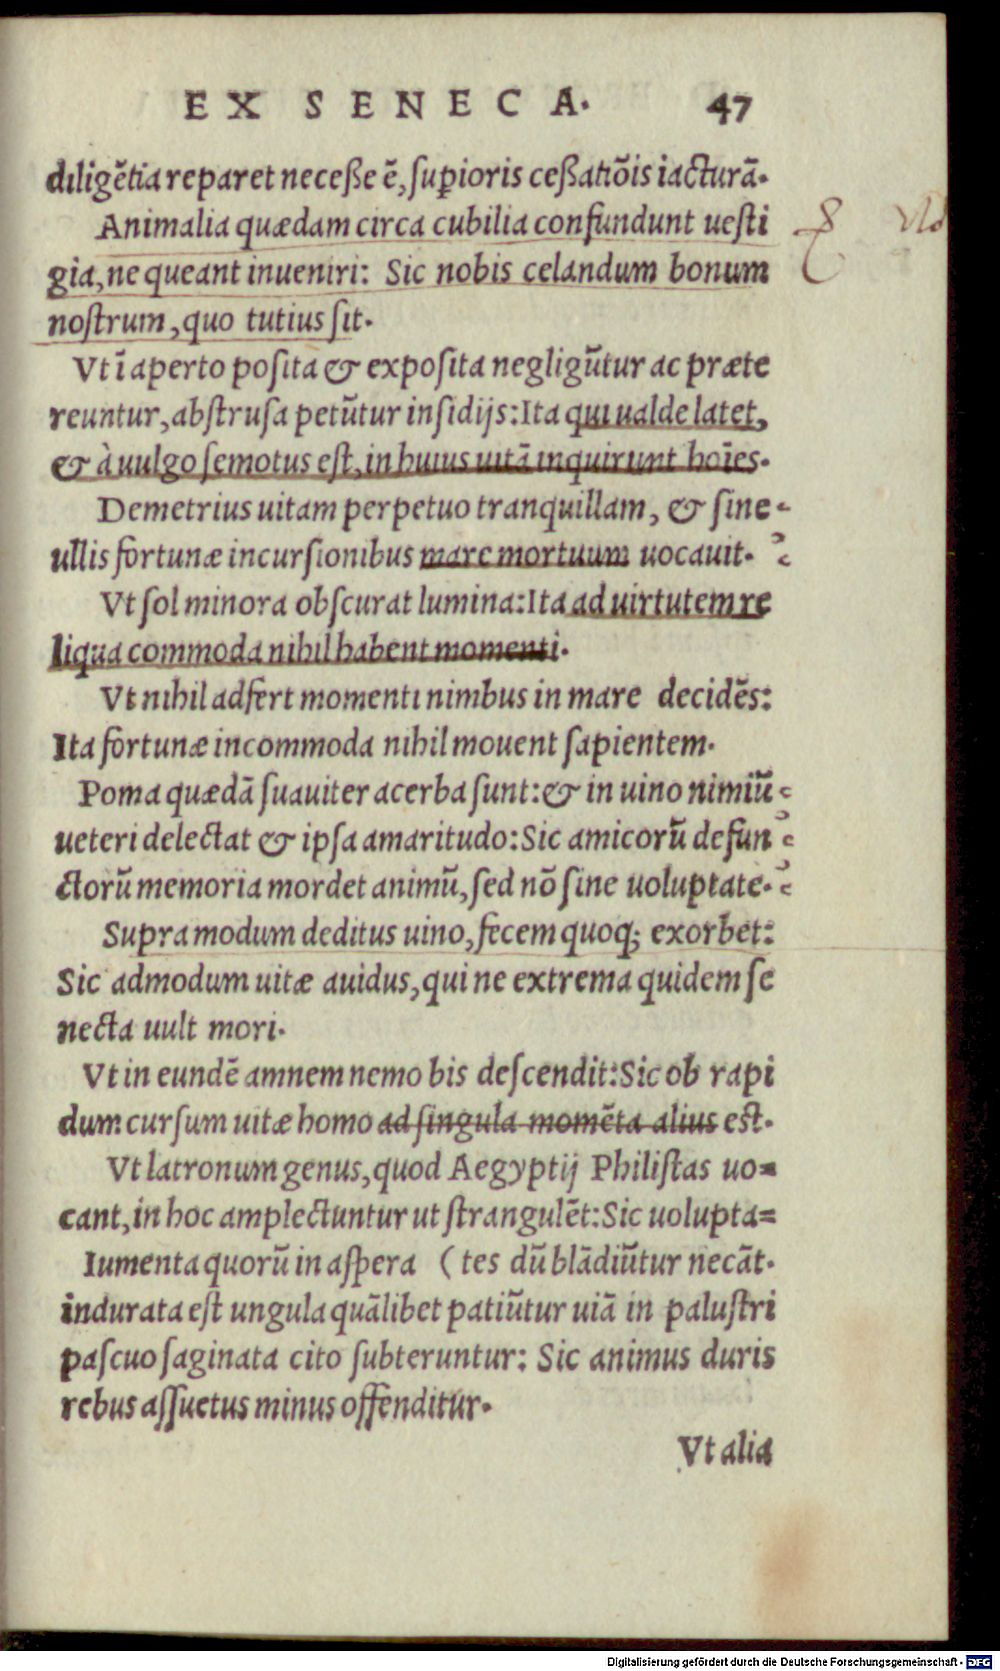 EX SENECA. 47
diligẽtia reparet neceße ẽ, sup̱ioris ceßatiõis iacturã.
Animalia quædam circa cubilia confundunt uesti
gia, ne queant inueniri: Sic nobis celandum bonum
nostrum, quo tutius sit.
Vt ĩ aperto posita & exposita negligũtur ac præte
reuntur, abstrusa petũtur insidijs: Ita qui ualde latet,
& à uulgo semotus est, in huius uitã inquirunt hoĩes.
Demetrius uitam perpetuo tranquillam, & sine
ullis fortunæ incursionibus mare mortuum uocauit.
Vt sol minora obscurat lumina: Ita ad uirtutem re
liqua commoda nihil habent momenti.
Vt nihil adfert momenti nimbus in mare decidẽs:
Ita fortunæ incommoda nihil mouent sapientem.
Poma quædã suauiter acerba sunt: & in uino nimiũ
ueteri delectat & ipsa amaritudo: Sic amicorũ defun
ctorũ memoria mordet animũ, sed nõ sine uoluptate.
Supra modum deditus uino, fecem quoq; exorbet:
Sic admodum uitæ auidus, qui ne extrema quidem se
necta uult mori.
Vt in eundẽ amnem nemo bis descendit: Sic ob rapi
dum cursum uitæ homo ad singula momẽta alius est.
Vt latronum genus, quod Aegyptij Philistas uo=
cant, in hoc amplectuntur ut strangulẽt: Sic uolupta=
Iumenta quorũ in aspera ( tes dũ blãdiũtur necãt.
indurata est ungula quãlibet patiũtur uiã in palustri
pascuo saginata cito subteruntur: Sic animus duris
rebus assuetus minus offenditur.
Vt alia
Digitalisierung gefördert durch die Deutsche Forschungsgemeinschaft - DFG